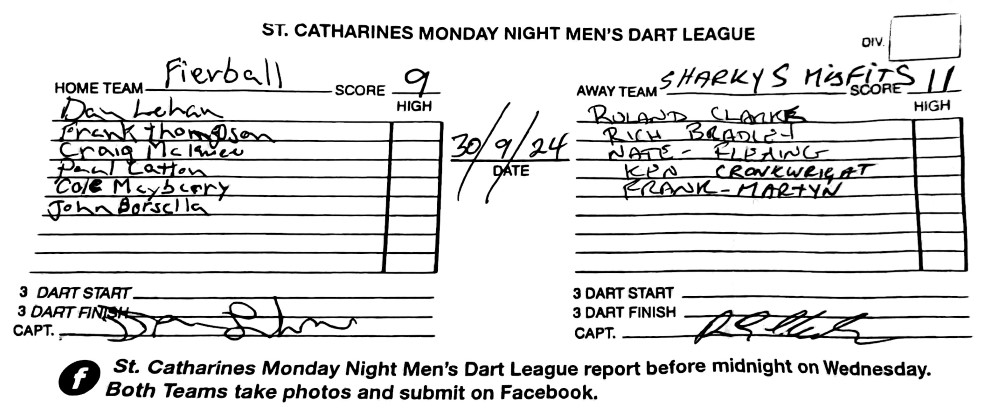 ST. CATHARINES MONDAY NIGHT MEN'S DART LEAGUE
DIV.
HOME TEAM Fierball SCORE 9
HIGH
Dan Lehan
Frank Thompson
Craig
Paul Latton
Cole Mayberry
John Borsella
30/9/24
DATE
AWAY TEAM SHARKYS MisFiTS SCORE 11
HIGH
ROLAND CLARKE
RICH BRADLEY
NATE - FLEMING
KEN CRONKWRIGHT
FRANK - MARTYN
3 DART START
3 DART FINISH
CAPT.
3 DART START
3 DART FINISH
CAPT.
f St. Catharines Monday Night Men's Dart League report before midnight on Wednesday.
Both Teams take photos and submit on Facebook.